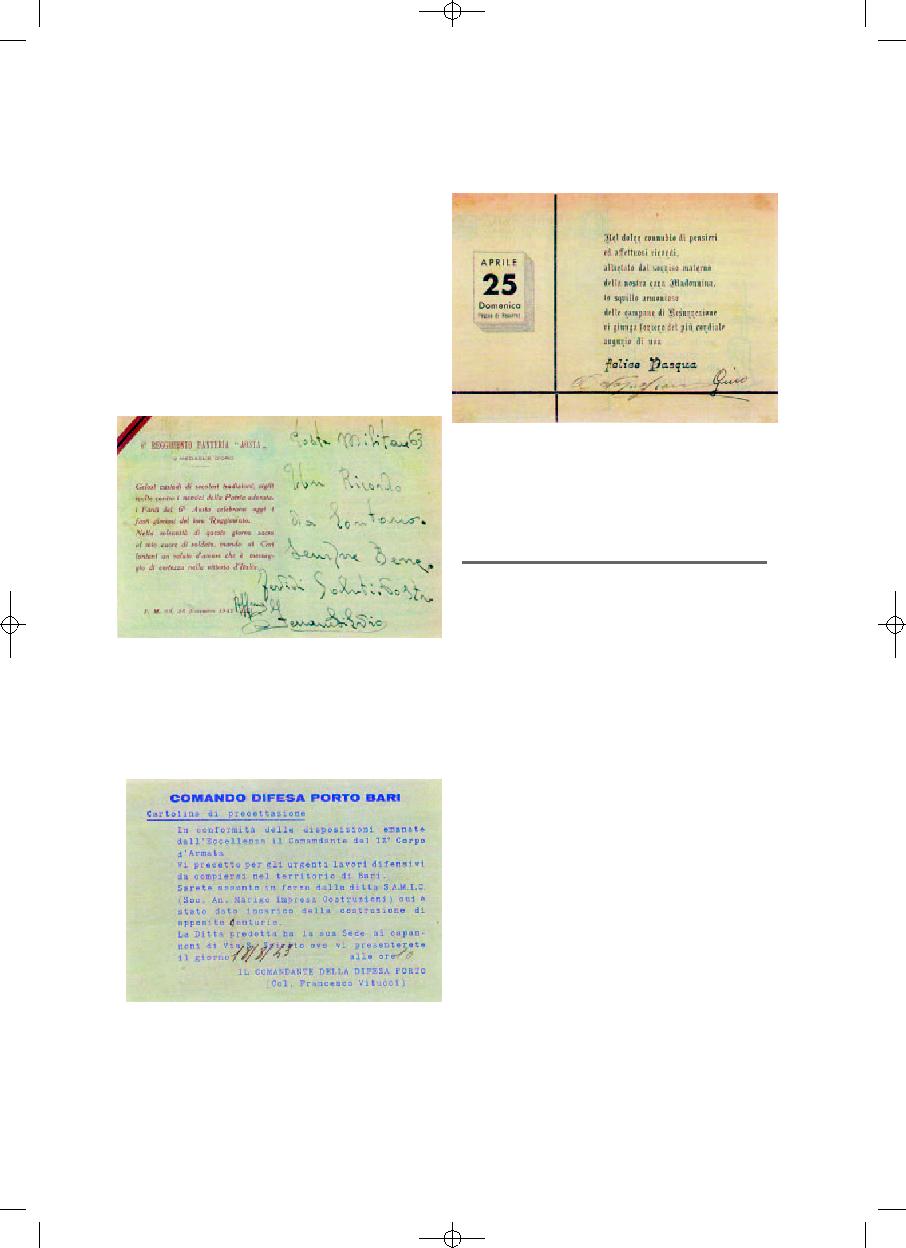 6° REGGIMENTO FANTERIA "AOSTA"
MEDAGLIE D'ORO
Gelosi custodi di secolari tradizioni, sigilli
sullo contro i nemici della Patria adorata,
i Fanti del 6° Aosta celebrano oggi i
fasti gloriosi del loro Reggimento.
Nella solennità di questo giorno sacro
al suo cuore di soldato, mando ai Cari
lontani un saluto d'amore che è messag-
gio di certezza nella vittoria d'Italia.
P. M. 63,
Posta Militare 63
Un Ricordo
da Lontano.
Sempre Bene.
Saluti Vostro
COMANDO DIFESA PORTO BARI
Cartolina di precettazione
In conformità delle disposizioni emanate
dall'Eccellenza il Comandante del IX° Corpo
d'Armata
Vi precetto per gli urgenti lavori difensivi
da compiersi nel territorio di Bari.
Sarete assunto in forza dalla ditta S.A.M.I.C.
(Soc. An. Marigo Impresa Costruzioni) cui è
stato dato incarico della costruzione di
apposite Centurie.
La Ditta predetta ha la sua Sede ai capan-
noni di Via S. ove vi presenterete
il giorno 18/8/43 alle ore 10
IL COMANDANTE DELLA DIFESA PORTO
(Col. Francesco Vitucci)
APRILE
25
Domenica
Pasqua di
Nel dolce connubio di pensieri
ed affettuosi ricordi,
allietato dal sorriso materno
della nostra cara Madonnina,
lo squillo armonioso
delle campane di Resurrezione
vi giunga foriero del più cordiale
augurio di una
felice Pasqua